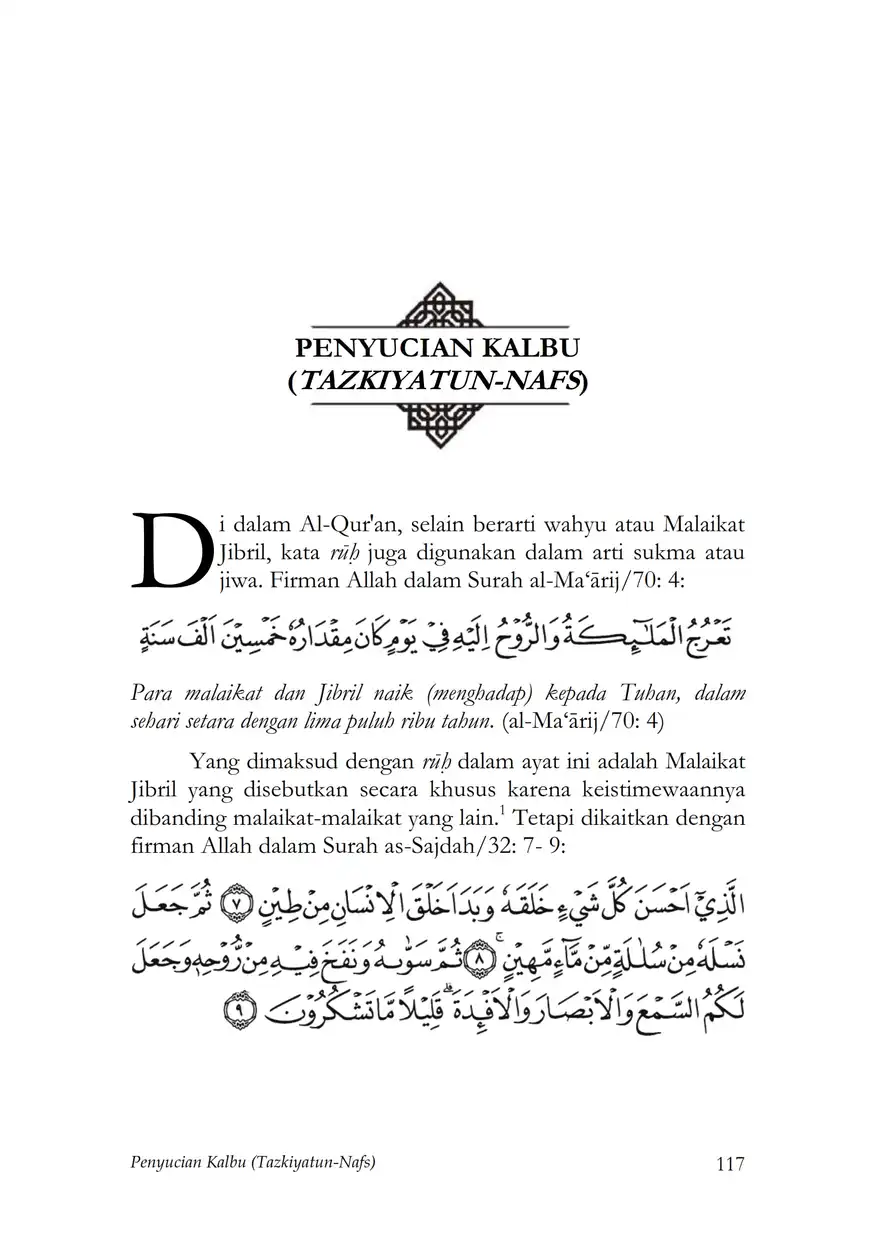 PENYUCIAN KALBU
(TAZKIYATUN-NAFS)
Di dalam Al-Qur'an, selain berarti wahyu atau Malaikat
Jibril, kata rūḥ juga digunakan dalam arti sukma atau
jiwa. Firman Allah dalam Surah al-Ma‘ārij/70: 4:
تَعْرُجُ الْمَلٰۤىِٕكَةُ وَالرُّوْحُ اِلَيْهِ فِيْ يَوْمٍ كَانَ مِقْدَارُهٗ خَمْسِيْنَ اَلْفَ سَنَةٍ
Para malaikat dan Jibril naik (menghadap) kepada Tuhan, dalam
sehari setara dengan lima puluh ribu tahun. (al-Ma‘ārij/70: 4)
Yang dimaksud dengan rūḥ dalam ayat ini adalah Malaikat
Jibril yang disebutkan secara khusus karena keistimewaannya
dibanding malaikat-malaikat yang lain.1 Tetapi dikaitkan dengan
firman Allah dalam Surah as-Sajdah/32: 7- 9:
الَّذِيْٓ اَحْسَنَ كُلَّ شَيْءٍ خَلَقَهٗ وَبَدَاَ خَلْقَ الْاِنْسَانِ مِنْ طِيْنٍ ٧ ثُمَّ جَعَلَ
نَسْلَهٗ مِنْ سُلٰلَةٍ مِّنْ مَّاۤءٍ مَّهِيْنٍ ۚ ٨ ثُمَّ سَوّٰىهُ وَنَفَخَ فِيْهِ مِنْ رُّوْحِهٖ وَجَعَلَ
لَكُمُ السَّمْعَ وَالْاَبْصَارَ وَالْاَفْـِٕدَةَ ۗ قَلِيْلًا مَّا تَشْكُرُوْنَ ٩
Penyucian Kalbu (Tazkiyatun-Nafs) 117